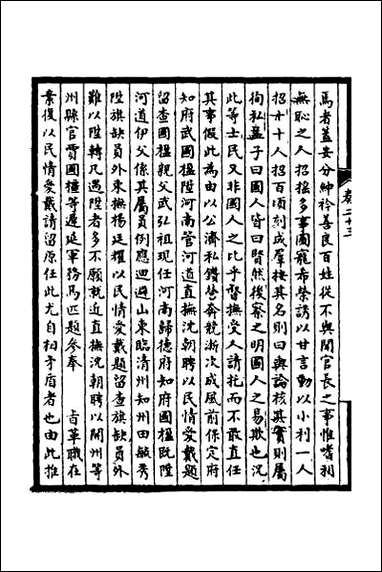 焉者蓋安分紳衿善良百姓從不與聞官長之事惟嗜利
無恥之人招搖多事圖寵希榮誘以甘言動以小利一人
招十十人招百頃刻成羣接其名則曰輿論核其實則屬
徇私孟子曰國人皆曰賢然後察之明國人之易欺也況
此等士民又非國人之比乎督撫受人請托而不敢直任
其事假此為由以公濟私鑽營奔競漸次成風前保定府
知府武國楹陞河南管河道直撫沈朝聘以民情愛戴題
留查國楹親父武弘祖現任河南歸德府知府國楹既陞
河道伊父係其屬員例應迴避山東臨清州知州田敏秀
陞旗缺員外東撫楊廷耀以民情愛戴題留查旗缺員外
難以陞轉凡遇陞者多不願就近直撫沈朝聘以開州等
州縣官賈國櫃等遲延軍務馬匹題參奉 旨革職在
案復以民情愛戴請留原任此尤自相矛盾者也由此推
卷二十三